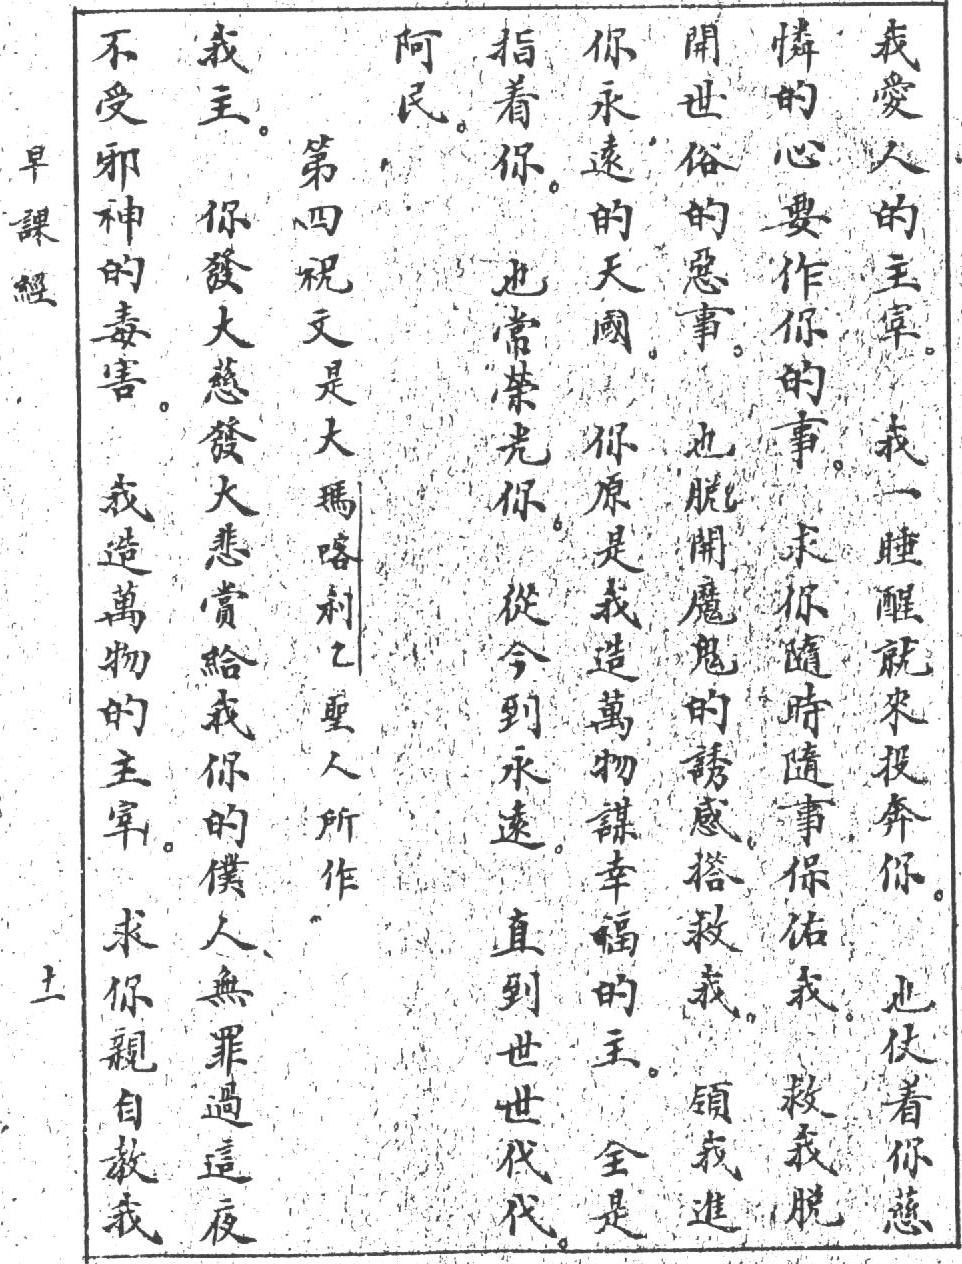 我愛人的主宰。我一睡醒就來投奔你。也仗着你慈
憐的心要作你的事。求你隨時隨事保佑我。救我脫
開世俗的惡事。也脫開魔鬼的誘惑。搭救我。領我進
你永遠的天國。你原是我造萬物謀幸福的主。全是
指着你。也常榮光你。從今到永遠。直到世世代代。
阿民。
第四祝文是大瑪喀利乙聖人所作
我主。你發大慈發大悲賞給我你的僕人、無罪過這夜
不受邪神的毒害。我造萬物的主宰。求你親自教我
早課經
十一